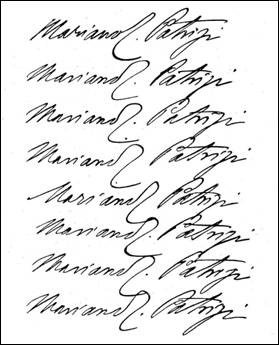 Mariano L. Patrizi
Mariano L. Patrizi
Mariano L. Patrizi
Mariano L. Patrizi
Mariano L. Patrizi
Mariano L. Patrizi
Mariano L. Patrizi
Mariano L. Patrizi